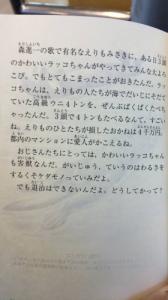 森進一の歌で有名なえりもみさきに、ある日３頭
のかわいいラッコちゃんがやってきてみんな大よろ
こび。でもとてもこまったことがおきたんだ。ラッ
コちゃんは、えりもの人たちが海でだいじにそだて
ていた高級ウニ４トンを、ぜんぶぱくぱくたべち
ゃったんだ。３頭で４トンもたべるなんて、すごい
ね。えりものひとたちが損したおかねは４千万円。
都内のマンションに愛人がかこえるね。
おじさんたちにとっては、かわいいラッコちゃん
も害獣なんだ。がいじゅう、ていうのはわるさをす
るくそケダモノっていみだよ。
でも退治はできないんだよ。どうしてかって？